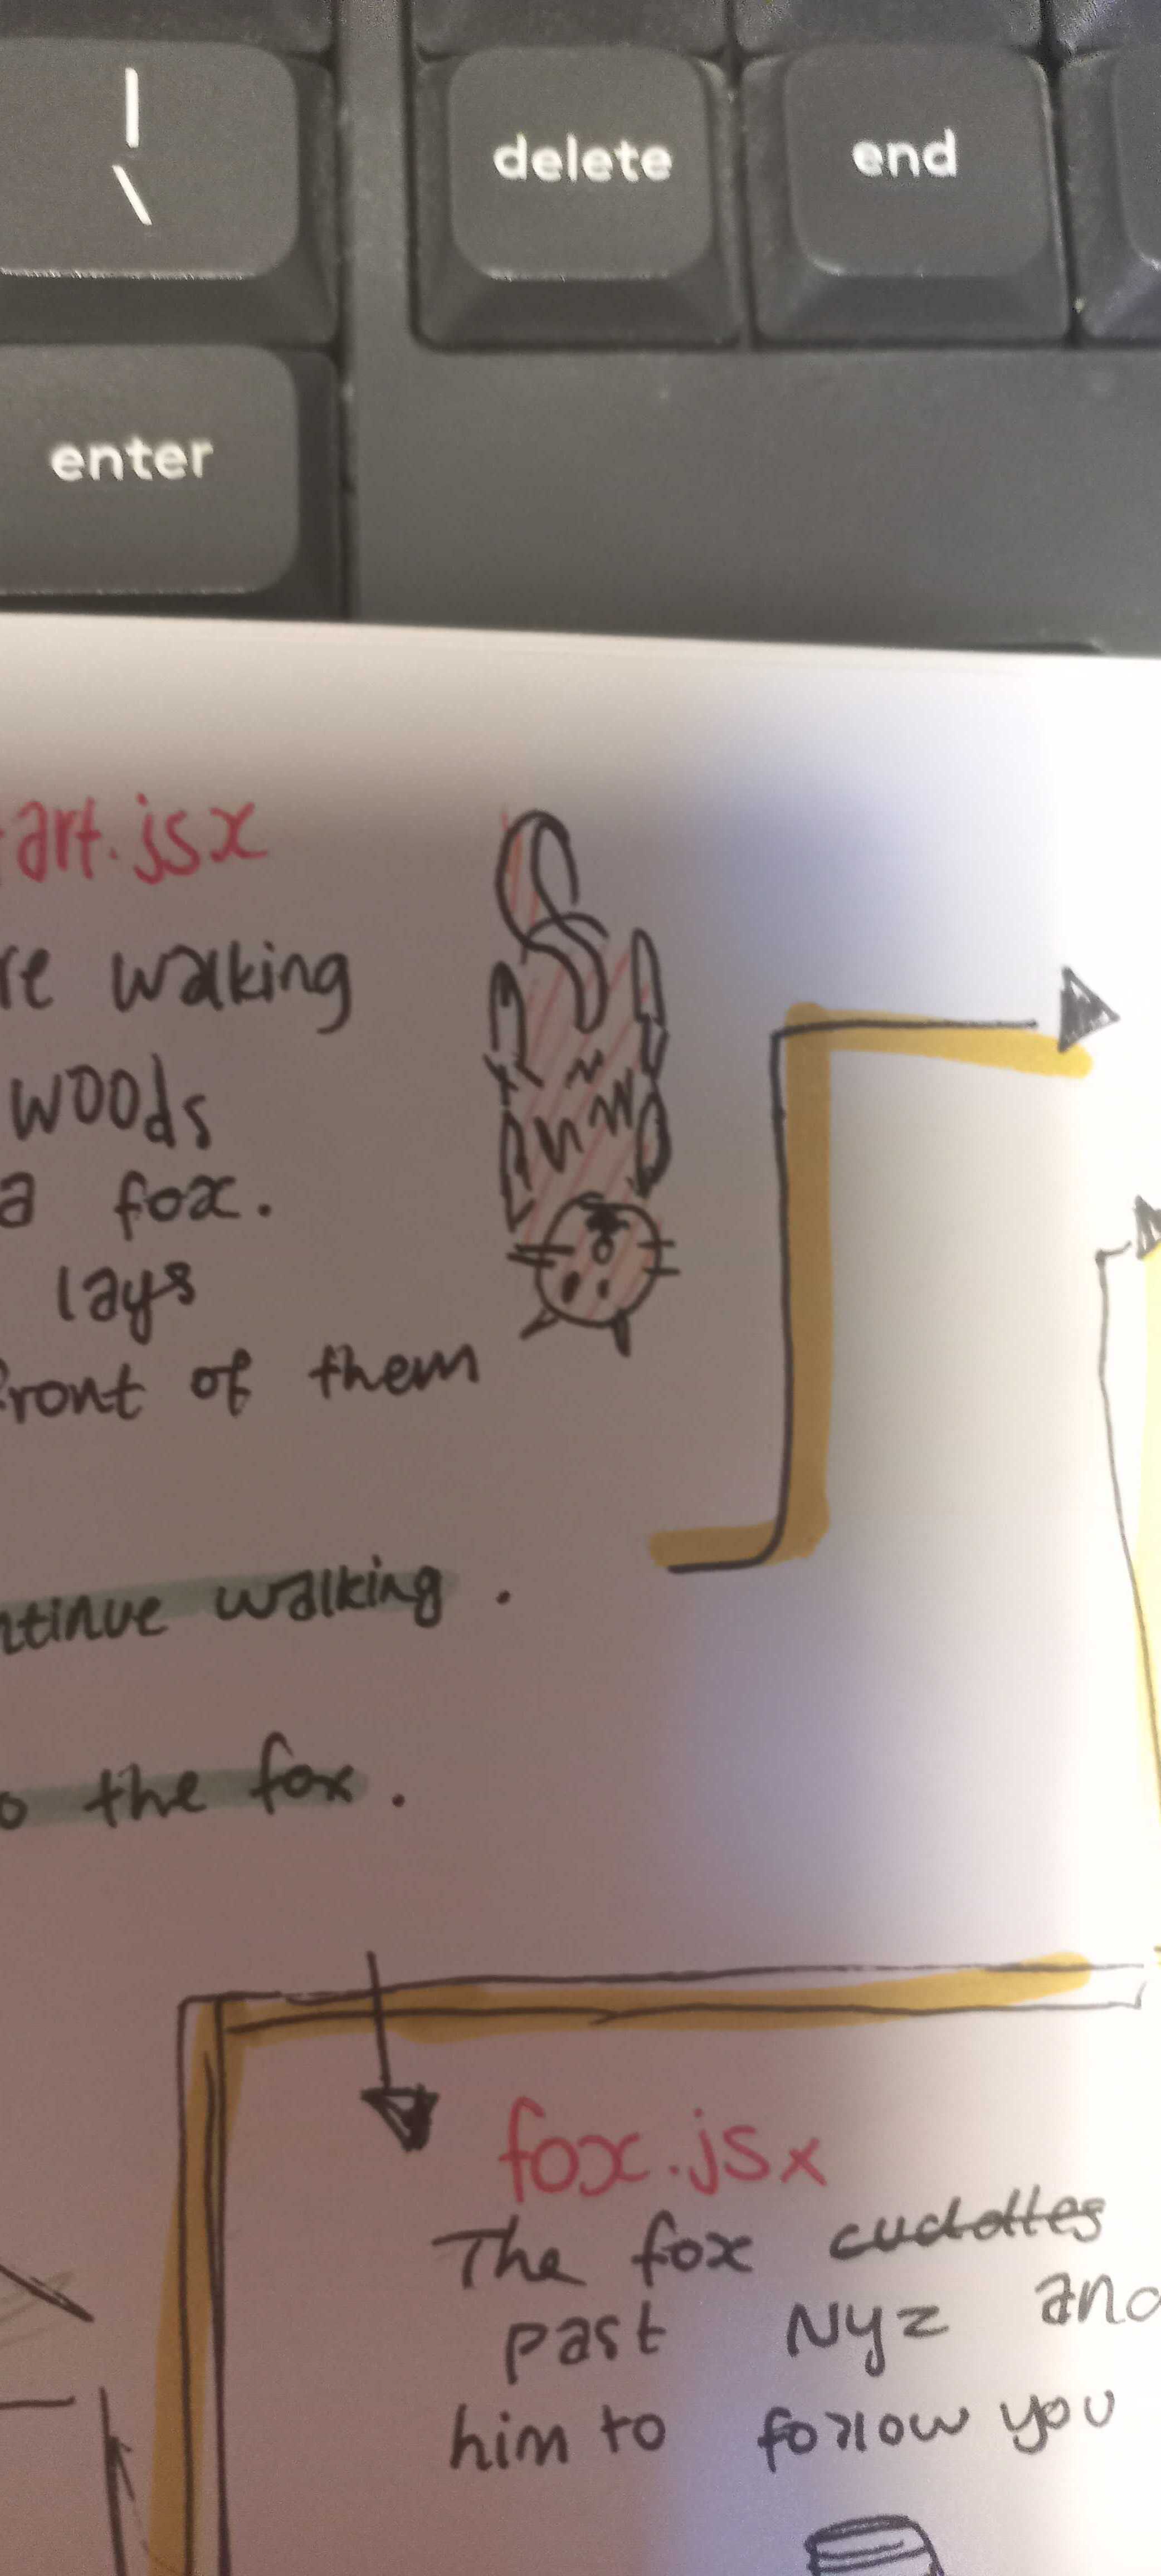 |
\
delete
end
enter
art.jsx
re walking
woods
a fox.
lays
front of them
ntinue walking.
o the fox.
fox.jsx
The fox cuddles
past Nyz and
him to follow you